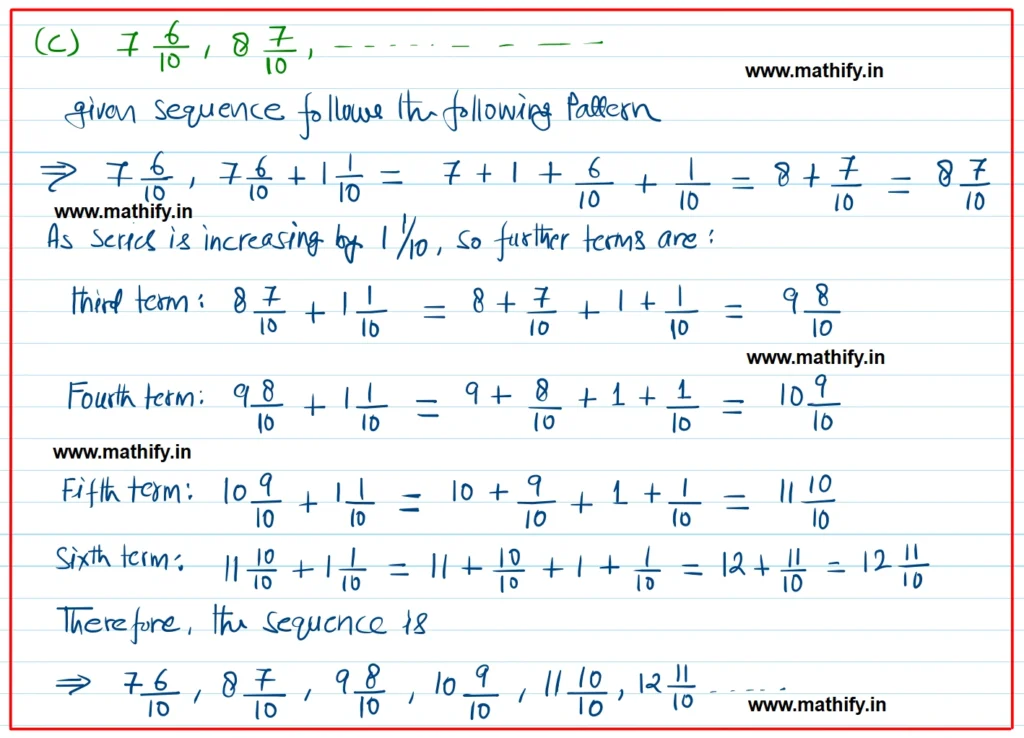 (c) 7 6/10, 8 7/10, -----------
www.mathify.in
given sequence follows the following Pattern
⇒ 7 6/10, 7 6/10 + 1 1/10 = 7 + 1 + 6/10 + 1/10 = 8 + 7/10 = 8 7/10
www.mathify.in
As series is increasing by 1 1/10, so further terms are:
third term: 8 7/10 + 1 1/10 = 8 + 7/10 + 1 + 1/10 = 9 8/10
www.mathify.in
Fourth term: 9 8/10 + 1 1/10 = 9 + 8/10 + 1 + 1/10 = 10 9/10
www.mathify.in
Fifth term: 10 9/10 + 1 1/10 = 10 + 9/10 + 1 + 1/10 = 11 10/10
Sixth term: 11 10/10 + 1 1/10 = 11 + 10/10 + 1 + 1/10 = 12 + 11/10 = 12 11/10
Therefore, the sequence is
⇒ 7 6/10, 8 7/10, 9 8/10, 10 9/10, 11 10/10, 12 11/10 ......
www.mathify.in